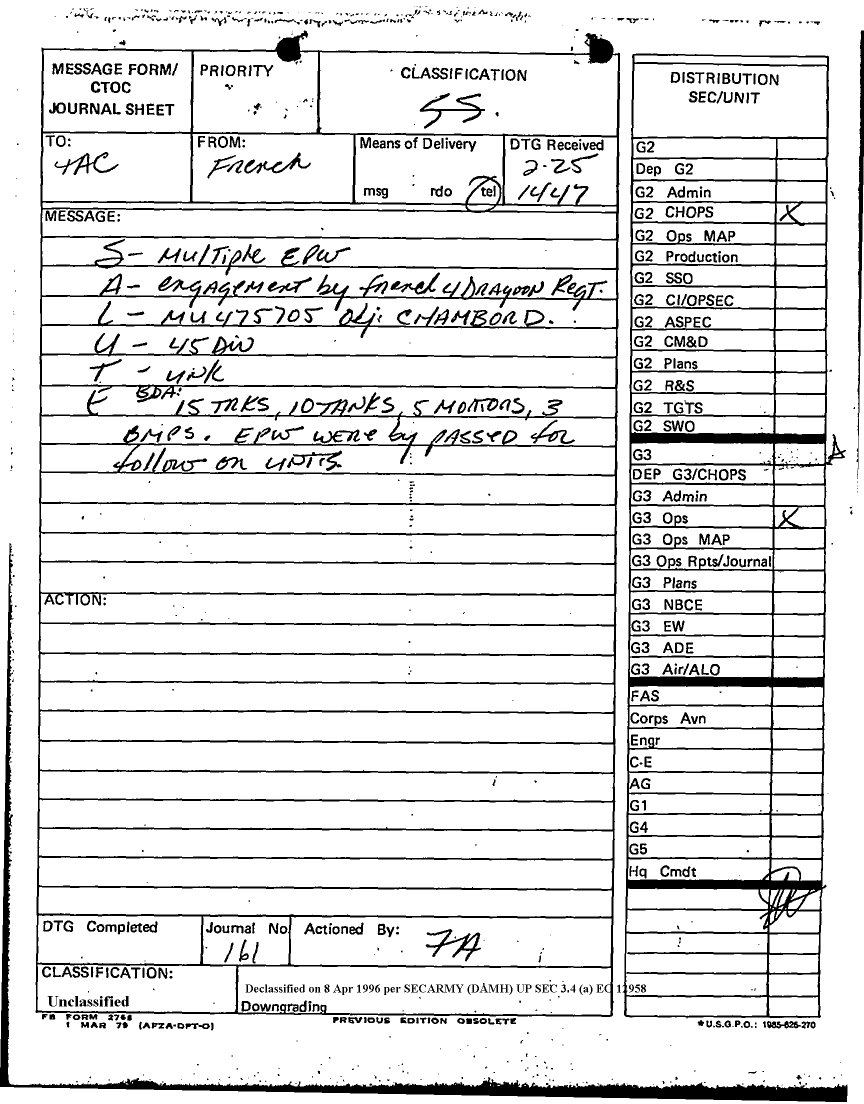 MESSAGE FORM/
CTOC
JOURNAL SHEET
PRIORITY
CLASSIFICATION
TO:
TAC
FROM:
French
Means of Delivery
msg rdo tel
DTG Received
2-25
1447
MESSAGE:
S - Multiple EPW
A - engagement by french 4 DRAGOON Regt.
L - MU475705 obj: CHAMBORD.
U - 45 DIV
T - UNK
E BDA:
15 TRKS, 10 TANKS, 5 MORTORS, 3
BMPS. EPW were by passed for
follow on UNITS.
ACTION:
DTG Completed
Journal No
161
Actioned By:
CLASSIFICATION:
Unclassified
Declassified on 8 Apr 1996 per SECARMY (DAMH) UP SEC 3.4 (a) EO 12958
Downgrading
FB FORM 2768
1 MAR 79 (AFZA-DPT-O)
PREVIOUS EDITION OBSOLETE
DISTRIBUTION
SEC/UNIT
G2
Dep G2
G2 Admin
G2 CHOPS X
G2 Ops MAP
G2 Production
G2 SSO
G2 CI/OPSEC
G2 ASPEC
G2 CM&D
G2 Plans
G2 R&S
G2 TGTS
G2 SWO
G3
DEP G3/CHOPS
G3 Admin
G3 Ops X
G3 Ops MAP
G3 Ops Rpts/Journal
G3 Plans
G3 NBCE
G3 EW
G3 ADE
G3 Air/ALO
FAS
Corps Avn
Engr
C-E
AG
G1
G4
G5
Hq Cmdt
*U.S.G.P.O.: 1985-626-270